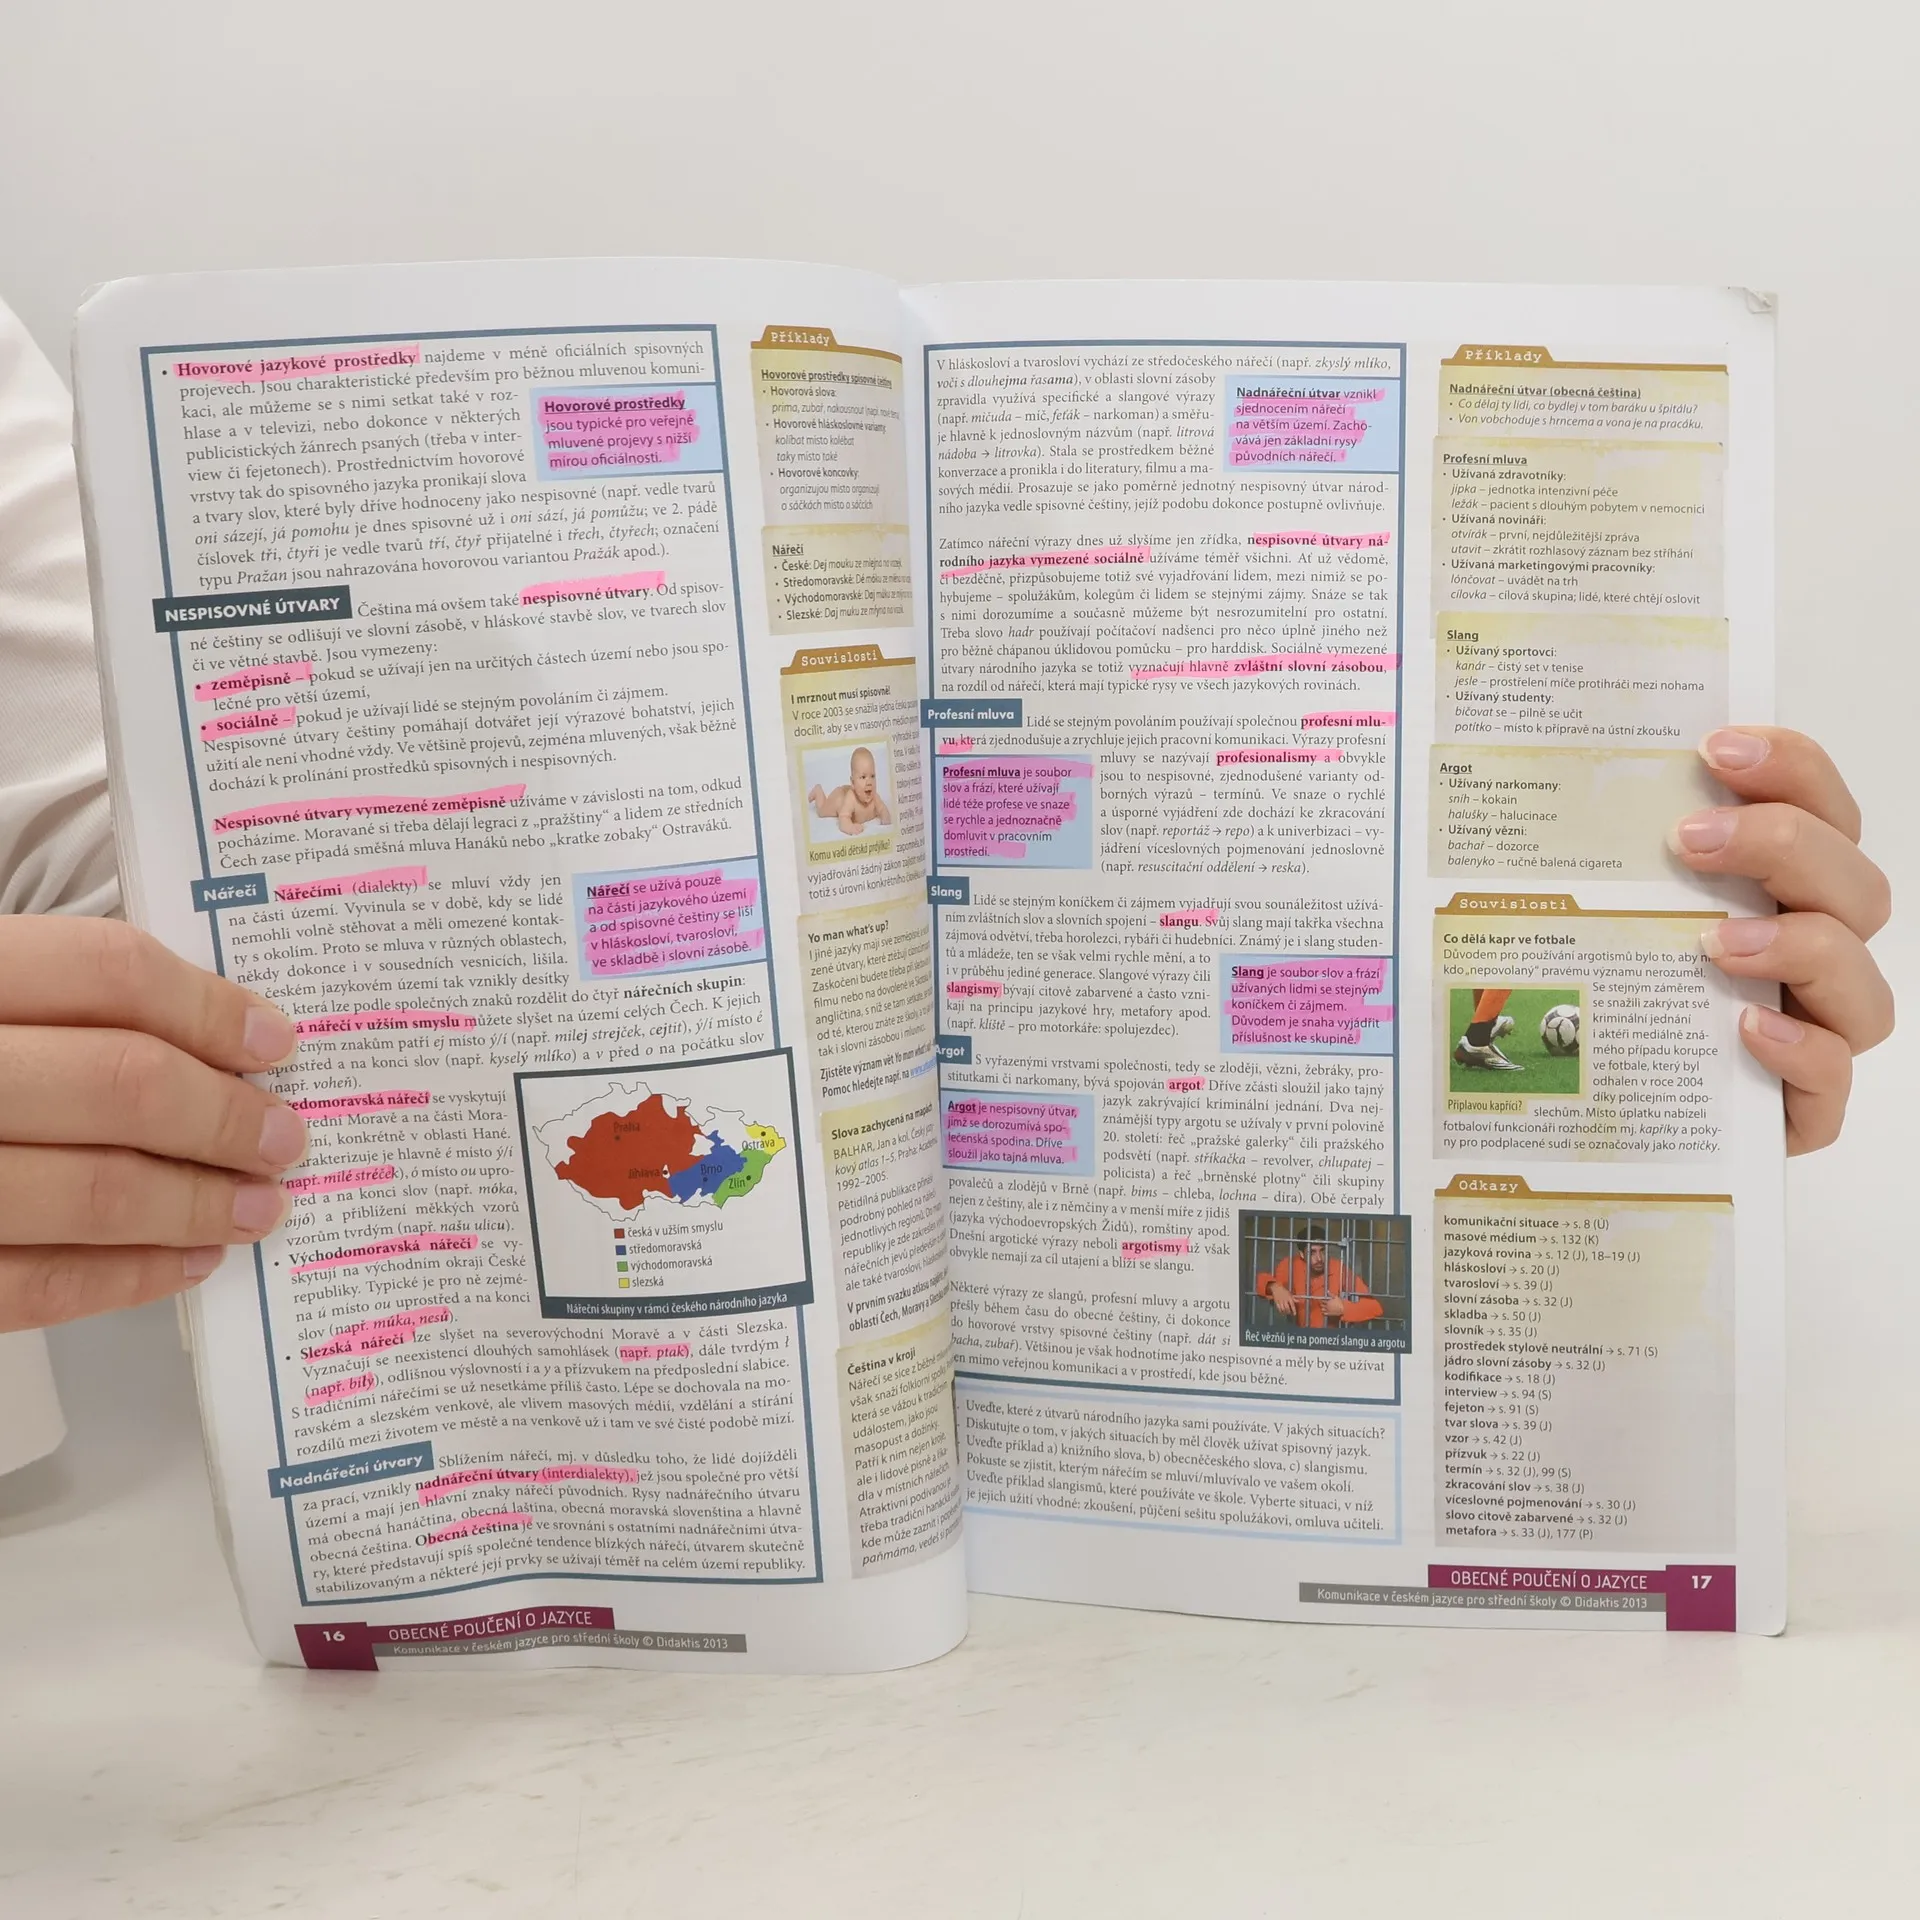 • Hovorové jazykové prostředky najdeme v méně oficiálních spisovných
projevech. Jsou charakteristické především pro běžnou mluvenou komuni-
kaci, ale můžeme se s nimi setkat také v roz-
hlase a v televizi, nebo dokonce v některých
publicistických žánrech psaných (třeba v inter-
view či fejetonech). Prostřednictvím hovorové
vrstvy tak do spisovného jazyka pronikají slova
a tvary slov, které byly dříve hodnoceny jako nespisovné (např. vedle tvarů
oni sázejí, já pomohu je dnes spisovné už i oni sází, já pomůžu; ve 2. pádě
číslovek tři, čtyři je vedle tvarů tří, čtyř přijatelné i třech, čtyřech; označení
typu Pražan jsou nahrazována hovorovou variantou Pražák apod.).
Hovorové prostředky
jsou typické pro veřejné
mluvené projevy s nižší
mírou oficiálnosti.
NESPISOVNÉ ÚTVARY
Čeština má ovšem také nespisovné útvary. Od spisov-
né češtiny se odlišují ve slovní zásobě, v hláskové stavbě slov, ve tvarech slov
či ve větné stavbě. Jsou vymezeny:
• zeměpisně – pokud se užívají jen na určitých částech území nebo jsou spo-
lečné pro větší území,
• sociálně – pokud je užívají lidé se stejným povoláním či zájmem.
Nespisovné útvary češtiny pomáhají dotvářet její výrazové bohatství, jejich
užití ale není vhodné vždy. Ve většině projevů, zejména mluvených, však běžně
dochází k prolínání prostředků spisovných i nespisovných.
Nespisovné útvary vymezené zeměpisně užíváme v závislosti na tom, odkud
pocházíme. Moravané si třeba dělají legraci z „pražštiny“ a lidem ze středních
Čech zase připadá směšná mluva Hanáků nebo „kratke zobaky“ Ostraváků.
Nářečí
Nářečími (dialekty) se mluví vždy jen
na části území. Vyvinula se v době, kdy se lidé
nemohli volně stěhovat a měli omezené kontak-
ty s okolím. Proto se mluva v různých oblastech,
někdy dokonce i v sousedních vesnicích, lišila.
českém jazykovém území tak vznikly desítky
která lze podle společných znaků rozdělit do čtyř nářečních skupin:
Nářečí se užívá pouze
na části jazykového území
a od spisovné češtiny se liší
v hláskosloví, tvarosloví,
ve skladbě i slovní zásobě.
nářečí v užším smyslu můžete slyšet na území celých Čech. K jejich
znakům patří ej místo ý/í (např. milej strejček, cejtit), ý/í místo é
uprostřed a na konci slov (např. kyselý mlíko) a v před o na počátku slov
(např. voheň).
nářečí se vyskytují
Moravě a na části Mora-
konkrétně v oblasti Hané.
je hlavně é místo ý/í
(např. milé stréček), ó místo ou upro-
před a na konci slov (např. móka,
pijó) a přiblížení měkkých vzorů
vzorům tvrdým (např. našu ulicu).
• Východomoravská nářečí se vy-
skytují na východním okraji České
republiky. Typické je pro ně zejmé-
na ú místo ou uprostřed a na konci
slov (např. múka, nesú).
• Slezská nářečí lze slyšet na severovýchodní Moravě a v části Slezska.
Vyznačují se neexistencí dlouhých samohlásek (např. ptak), dále tvrdým ł
(např. biły), odlišnou výslovností i a y a přízvukem na předposlední slabice.
S tradičními nářečími se už nesetkáme příliš často. Lépe se dochovala na mo-
ravském a slezském venkově, ale vlivem masových médií, vzdělání a stírání
rozdílů mezi životem ve městě a na venkově už i tam ve své čisté podobě mizí.
Praha
Jihlava
Brno
Ostrava
Zlín
česká v užším smyslu
středomoravská
východomoravská
slezská
Nářeční skupiny v rámci českého národního jazyka
Nadnářeční útvary
Sblížením nářečí, mj. v důsledku toho, že lidé dojížděli
za prací, vznikly nadnářeční útvary (interdialekty), jež jsou společné pro větší
území a mají jen hlavní znaky nářečí původních. Rysy nadnářečního útvaru
má obecná hanáčtina, obecná laština, obecná moravská slovenština a hlavně
obecná čeština. Obecná čeština je ve srovnání s ostatními nadnářečními útva-
ry, které představují spíš společné tendence blízkých nářečí, útvarem skutečně
stabilizovaným a některé její prvky se užívají téměř na celém území republiky.
16
OBECNÉ POUČENÍ O JAZYCE
Komunikace v českém jazyce pro střední školy © Didaktis 2013
Příklady
Hovorové prostředky spisovné češtiny
• Hovorová slova:
prima, zubař, nakousnout
• Hovorové hláskoslovné varianty
kolíbat místo kolébat
taky místo také
• Hovorové koncovky:
organizujou místo organizují
o sáčkách místo o sáčcích
Nářečí
• České: Dej mouku ze mlejna na vozejk.
• Středomoravské: Dé móku ze
• Východomoravské: Daj múku ze
• Slezské: Daj muku ze młyna na vozik.
Souvislosti
I mrznout musí spisovně!
V roce 2003 se snažila jedna
docílit, aby se v masových médiích
Komu vadí dětská prdýlka?
vyjadřování žádný zákon
totiž s úrovní konkrétního
Yo man what's up?
I jiné jazyky mají své zeměpisně
zené útvary, které ztěžují
Zaskočeni budete třeba při
filmu nebo na dovolené ve
angličtina, s níž se tam setkáte,
od té, kterou znáte ze školy,
tak i slovní zásobou i mluvnicí.
Zjistěte význam vět Yo man what's
Pomoc hledejte např. na
Slova zachycená na mapách
BALHAR, Jan a kol. Český jazy-
kový atlas 1–5. Praha: Academia
1992–2005.
Pětidílná publikace přináší
podrobný pohled na nářečí
jednotlivých regionů. Do map
republiky je zde zakreslen
nářečních jevů především
ale také tvarosloví,
V prvním svazku atlasu najděte,
oblasti Čech, Moravy a Slezska
Čeština v kroji
Nářečí se sice z běžné
však snaží folklorní spolky,
která se vážou k tradičním
událostem, jako jsou
masopust a dožínky.
Patří k nim nejen kroje,
ale i lidové písně a
dla v místních nářečích.
Atraktivní podívanou je
třeba tradiční hanácká
kde může zaznít i
paňmámo, vedeš si
V hláskosloví a tvarosloví vychází ze středočeského nářečí (např. zkyslý mlíko,
voči s dlouhejma řasama), v oblasti slovní zásoby
zpravidla využívá specifické a slangové výrazy
(např. mičuda – míč, feťák – narkoman) a směřu-
je hlavně k jednoslovným názvům (např. litrová
nádoba → litrovka). Stala se prostředkem běžné
konverzace a pronikla i do literatury, filmu a ma-
sových médií. Prosazuje se jako poměrně jednotný nespisovný útvar národ-
ního jazyka vedle spisovné češtiny, jejíž podobu dokonce postupně ovlivňuje.
Nadnářeční útvar vznikl
sjednocením nářečí
na větším území. Zacho-
vává jen základní rysy
původních nářečí.
Zatímco nářeční výrazy dnes už slyšíme jen zřídka, nespisovné útvary ná-
rodního jazyka vymezené sociálně užíváme téměř všichni. Ať už vědomě,
či bezděčně, přizpůsobujeme totiž své vyjadřování lidem, mezi nimiž se po-
hybujeme – spolužákům, kolegům či lidem se stejnými zájmy. Snáze se tak
s nimi dorozumíme a současně můžeme být nesrozumitelní pro ostatní.
Třeba slovo hadr používají počítačoví nadšenci pro něco úplně jiného než
pro běžně chápanou úklidovou pomůcku – pro harddisk. Sociálně vymezené
útvary národního jazyka se totiž vyznačují hlavně zvláštní slovní zásobou,
na rozdíl od nářečí, která mají typické rysy ve všech jazykových rovinách.
Profesní mluva
Lidé se stejným povoláním používají společnou profesní mlu-
vu, která zjednodušuje a zrychluje jejich pracovní komunikaci. Výrazy profesní
mluvy se nazývají profesionalismy a obvykle
jsou to nespisovné, zjednodušené varianty od-
borných výrazů – termínů. Ve snaze o rychlé
a úsporné vyjádření zde dochází ke zkracování
slov (např. reportáž → repo) a k univerbizaci – vy-
jádření víceslovných pojmenování jednoslovně
(např. resuscitační oddělení → reska).
Profesní mluva je soubor
slov a frází, které užívají
lidé téže profese ve snaze
se rychle a jednoznačně
domluvit v pracovním
prostředí.
Slang
Lidé se stejným koníčkem či zájmem vyjadřují svou sounáležitost užívá-
ním zvláštních slov a slovních spojení – slangu. Svůj slang mají takřka všechna
zájmová odvětví, třeba horolezci, rybáři či hudebníci. Známý je i slang studen-
tů a mládeže, ten se však velmi rychle mění, a to
i v průběhu jediné generace. Slangové výrazy čili
slangismy bývají citově zabarvené a často vzni-
kají na principu jazykové hry, metafory apod.
(např. klíště – pro motorkáře: spolujezdec).
Slang je soubor slov a frází
užívaných lidmi se stejným
koníčkem či zájmem.
Důvodem je snaha vyjádřit
příslušnost ke skupině.
Argot
S vyřazenými vrstvami společnosti, tedy se zloději, vězni, žebráky, pro-
stitutkami či narkomany, bývá spojován argot. Dříve zčásti sloužil jako tajný
jazyk zakrývající kriminální jednání. Dva nej-
známější typy argotu se užívaly v první polovině
20. století: řeč „pražské galerky“ čili pražského
podsvětí (např. stříkačka – revolver, chlupatej –
policista) a řeč „brněnské plotny“ čili skupiny
povalečů a zlodějů v Brně (např. bims – chleba, lochna – díra). Obě čerpaly
nejen z češtiny, ale i z němčiny a v menší míře z jidiš
(jazyka východoevropských Židů), romštiny apod.
Dnešní argotické výrazy neboli argotismy už však
obvykle nemají za cíl utajení a blíží se slangu.
Argot je nespisovný útvar,
jímž se dorozumívá spo-
lečenská spodina. Dříve
sloužil jako tajná mluva.
Některé výrazy ze slangů, profesní mluvy a argotu
přešly během času do obecné češtiny, či dokonce
do hovorové vrstvy spisovné češtiny (např. dát si
bacha, zubař). Většinou je však hodnotíme jako nespisovné a měly by se užívat
jen mimo veřejnou komunikaci a v prostředí, kde jsou běžné.
Řeč vězňů je na pomezí slangu a argotu
Uveďte, které z útvarů národního jazyka sami používáte. V jakých situacích?
Diskutujte o tom, v jakých situacích by měl člověk užívat spisovný jazyk.
Uveďte příklad a) knižního slova, b) obecněčeského slova, c) slangismu.
Pokuste se zjistit, kterým nářečím se mluví/mluvívalo ve vašem okolí.
Uveďte příklad slangismů, které používáte ve škole. Vyberte situaci, v níž
je jejich užití vhodné: zkoušení, půjčení sešitu spolužákovi, omluva učiteli.
Příklady
Nadnářeční útvar (obecná čeština)
• Co dělaj ty lidi, co bydlej v tom baráku u špitálu?
• Von vobchoduje s hrncema a vona je na pracáku.
Profesní mluva
• Užívaná zdravotníky:
jipka – jednotka intenzivní péče
ležák – pacient s dlouhým pobytem v nemocnici
• Užívaná novináři:
otvírák – první, nejdůležitější zpráva
utavit – zkrátit rozhlasový záznam bez stříhání
• Užívaná marketingovými pracovníky:
lónčovat – uvádět na trh
cílovka – cílová skupina; lidé, které chtějí oslovit
Slang
• Užívaný sportovci:
kanár – čistý set v tenise
jesle – prostřelení míče protihráči mezi nohama
• Užívaný studenty:
bičovat se – pilně se učit
potítko – místo k přípravě na ústní zkoušku
Argot
• Užívaný narkomany:
sníh – kokain
halušky – halucinace
• Užívaný vězni:
bachař – dozorce
balenyko – ručně balená cigareta
Souvislosti
Co dělá kapr ve fotbale
Důvodem pro používání argotismů bylo to, aby
kdo „nepovolaný“ pravému významu nerozuměl.
Se stejným záměrem
se snažili zakrývat své
kriminální jednání
i aktéři mediálně zná-
mého případu korupce
ve fotbale, který byl
odhalen v roce 2004
díky policejním odpo-
slechům. Místo úplatku nabízeli
fotbaloví funkcionáři rozhodčím mj. kapříky a poky-
ny pro podplacené sudí se označovaly jako notičky.
Připlavou kapříci?
Odkazy
komunikační situace → s. 8 (Ú)
masové médium → s. 132 (K)
jazyková rovina → s. 12 (J), 18–19 (J)
hláskosloví → s. 20 (J)
tvarosloví → s. 39 (J)
slovní zásoba → s. 32 (J)
skladba → s. 50 (J)
slovník → s. 35 (J)
prostředek stylově neutrální → s. 71 (S)
jádro slovní zásoby → s. 32 (J)
kodifikace → s. 18 (J)
interview → s. 94 (S)
fejeton → s. 91 (S)
tvar slova → s. 39 (J)
vzor → s. 42 (J)
přízvuk → s. 22 (J)
termín → s. 32 (J), 99 (S)
zkracování slov → s. 38 (J)
víceslovné pojmenování → s. 30 (J)
slovo citově zabarvené → s. 32 (J)
metafora → s. 33 (J), 177 (P)
OBECNÉ POUČENÍ O JAZYCE
17
Komunikace v českém jazyce pro střední školy © Didaktis 2013